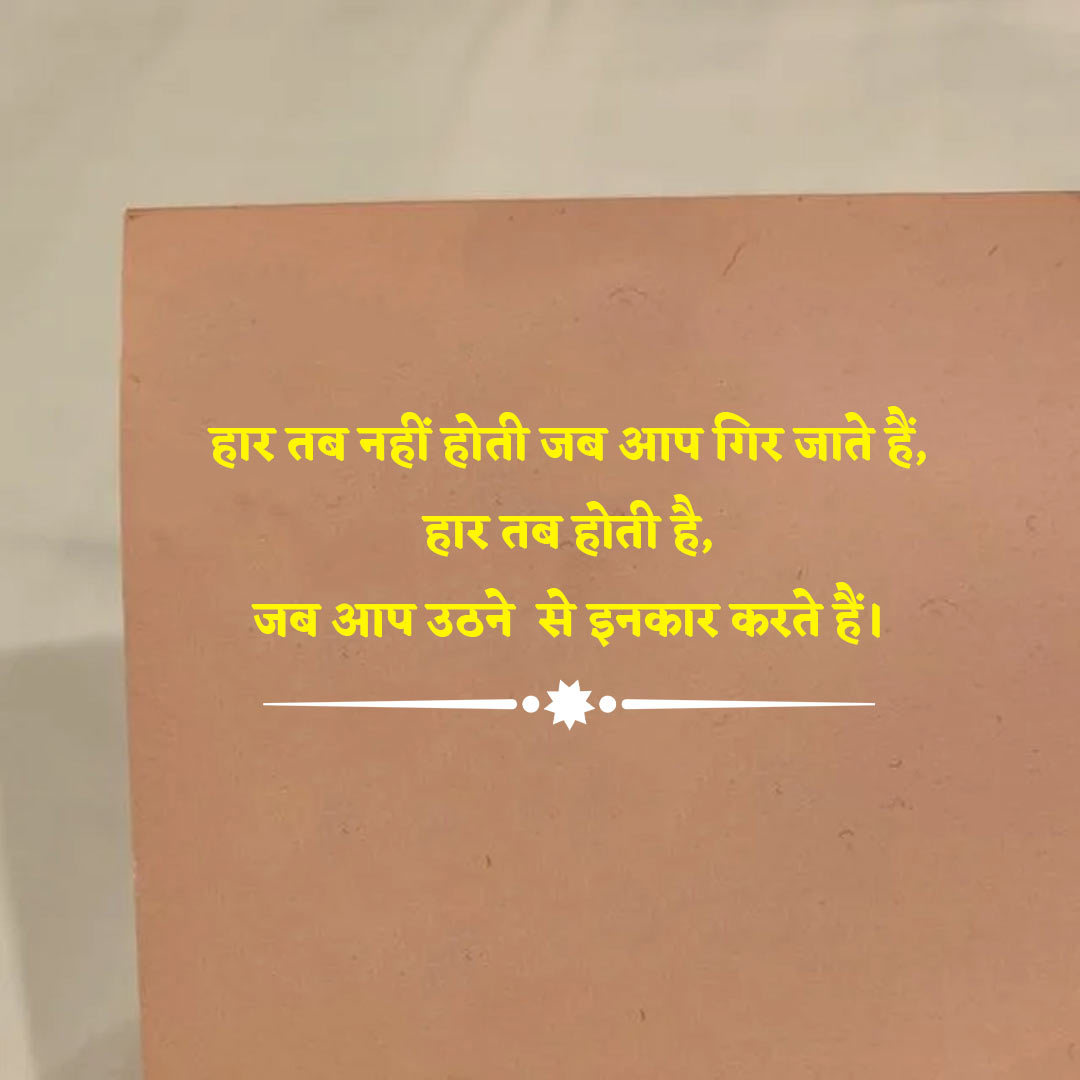 हार तब नहीं होती जब आप गिर जाते हैं,
हार तब होती है,
जब आप उठने  से इनकार करते हैं।